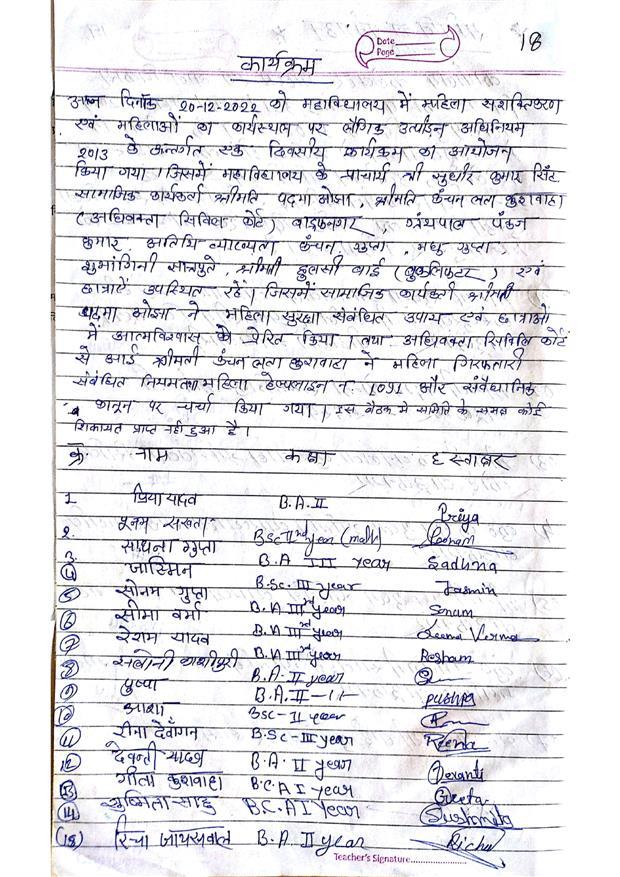 Date
Page
18
कार्यक्रम
आज दिनाँक 20-12-2022 को महाविद्यालय में महिला सशक्तिकरण
एवं महिलाओं का कार्यस्थल पर लैंगिक उत्पीडन अधिनियम
2013 के अन्तर्गत एक दिवसीय कार्यक्रम का आयोजन
किया गया। जिसमें महाविद्यालय के प्राचार्य श्री सुधीर कुमार सिंह
सामाजिक कार्यकर्ता श्रीमति पदमा ओझा, श्रीमति कंचन लता कुशवाहा
(अधिवक्ता सिविल कोर्ट) वाड्रफनगर, ग्रंथपाल पंकज
कुमार, अतिथि व्याख्यता कंचन गुप्ता, मधु गुप्ता,
शुभांगिनी सातपुते, श्रीमती तुलसी बाई (बुकलिफ्टर) एवं
छात्राऐं उपस्थित रहें। जिसमें सामाजिक कार्यकर्ता श्रीमती
पदमा ओझा ने महिला सुरक्षा संबंधित उपाय एवं छात्राओं
में आत्मविश्वास को प्रेरित किया। तथा अधिवक्ता सिविल कोर्ट
से आई श्रीमती कंचन लता कुशवाहा ने महिला गिरफ्तारी
संबंधित नियम तथा महिला हेल्पलाइन नं. 1091 और संवैधानिक
कानून पर चर्चा किया गया। इस बैठक में समिति के समक्ष कोई
शिकायत प्राप्त नहीं हुआ है।
क्र. नाम कक्षा हस्ताक्षर
1 प्रिया यादव B.A.II Priya
2. पूनम BSc IInd year (math) Poonam
3. साधना गुप्ता B.A III year Sadhna
4 जास्मिन B.Sc. III year Jasmin
5 सोनम गुप्ता B.A IIIrd year Sonam
6 सीमा वर्मा B.A IIIrd year Seema Verma
7 रेशम यादव B.A III year Resham
8 काशीपुरी B.A-II year
9 पुष्पा B.A.II-11 pushpa
10 आशा BSc-II year
11 रीना देवाँगन B.Sc-III year Reena
12 देवन्ती यादव B.A II year Devanti
13 गीता कुशवाहा B.C.A I year Geeta
14 सुष्मिता साहु B.C.A I Year Sushmita
(15) रिचा जायसवाल B.A II year Richa
Teacher's Signature